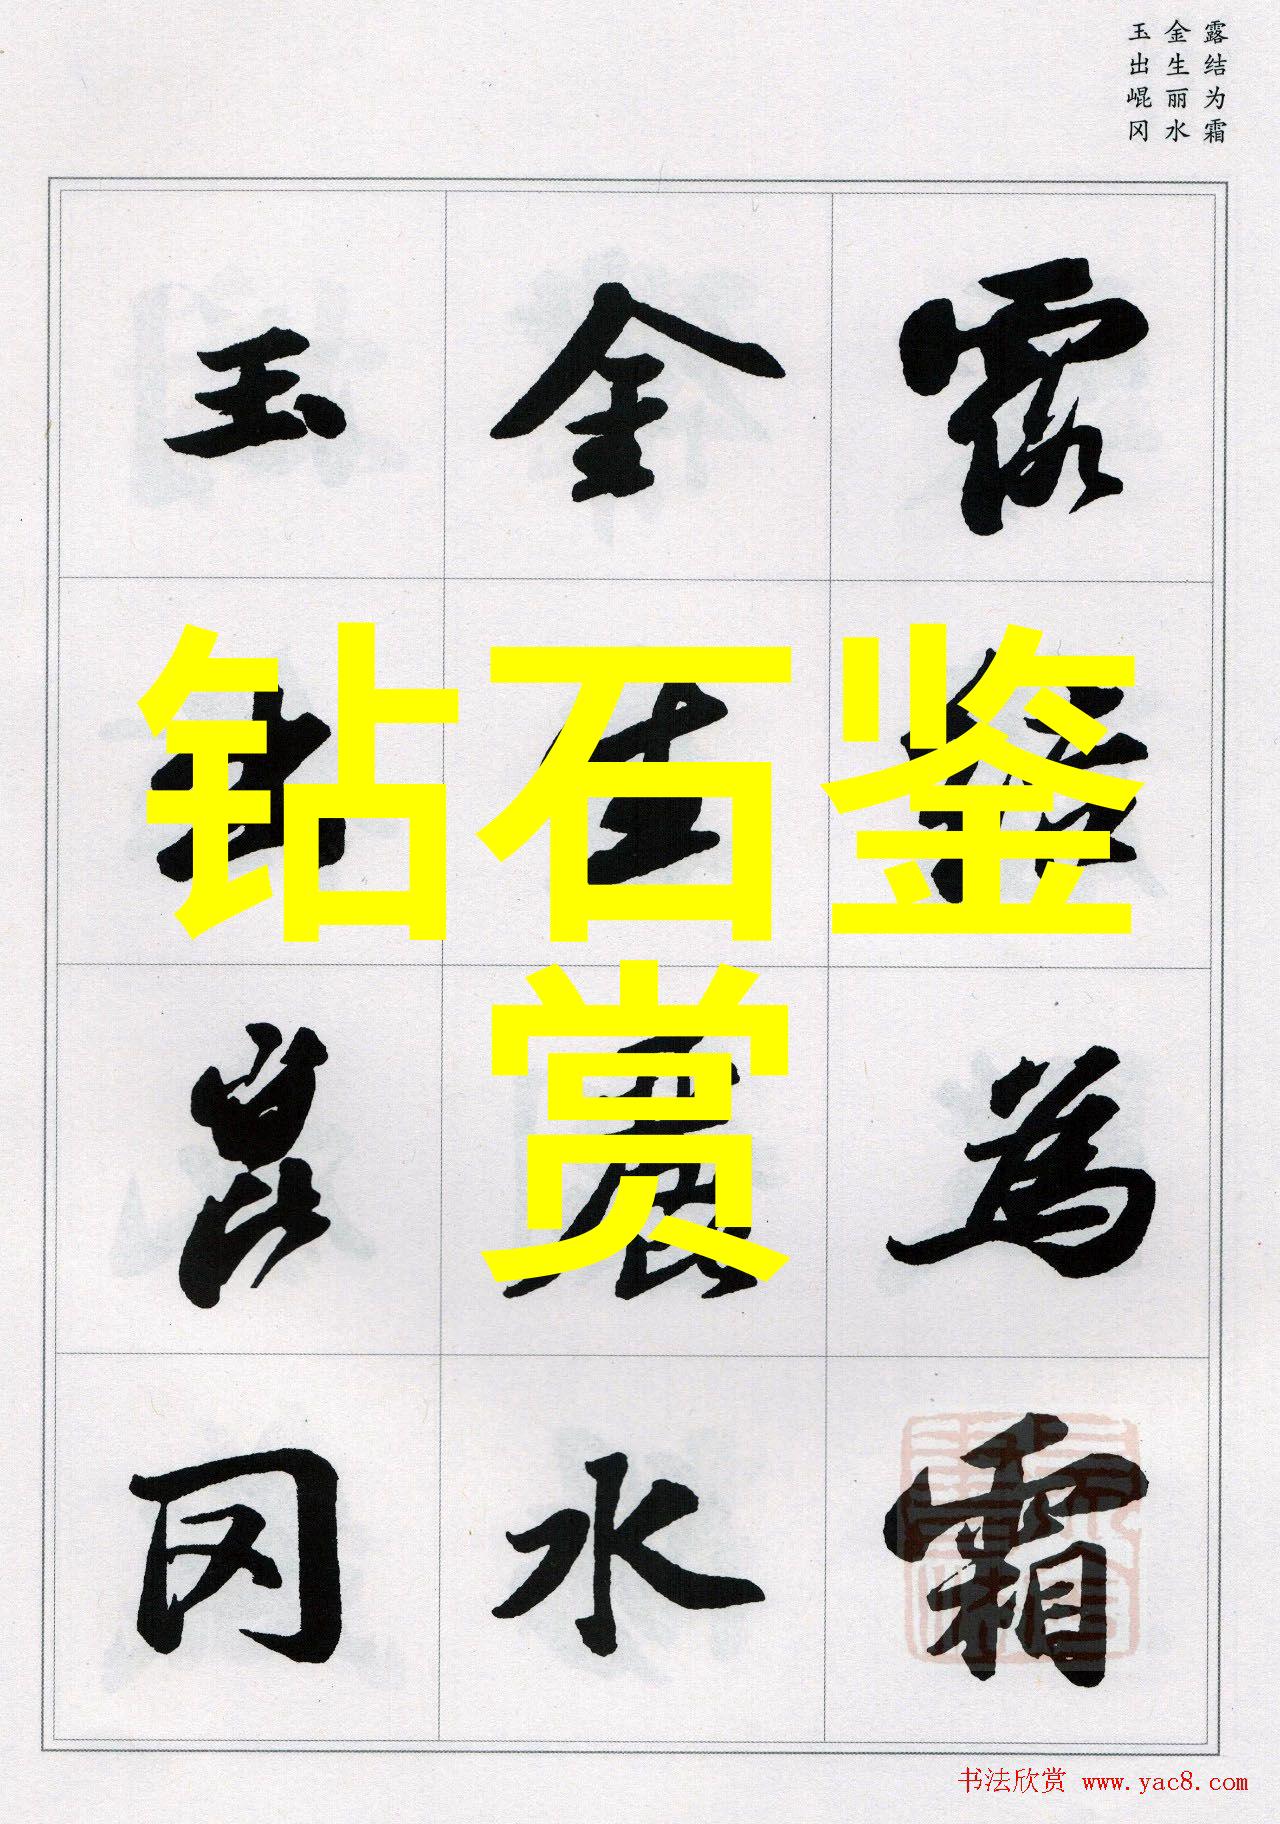 露结为霜
金生丽水
玉出崐冈
露結為霜
金生麗水
玉出崑冈
钻石鉴
赏
书法欣赏 www.yac8.com